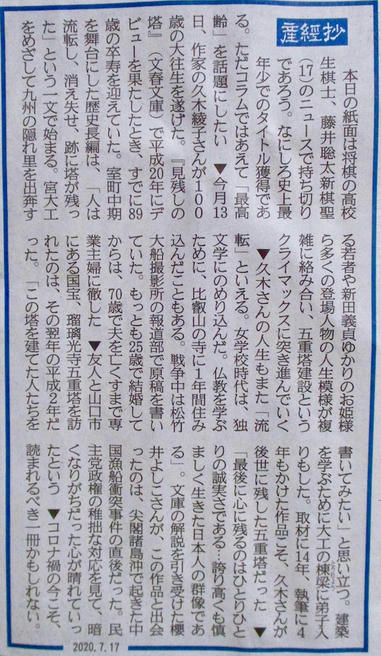 産經抄
本日の紙面は将棋の高校
生棋士、藤井聡太新棋聖
(17)のニュースで持ち切り
であろう。なにしろ史上最
年少でのタイトル獲得であ
る。ただコラムではあえて「最高
齢」を話題にしたい▼今月13
日、作家の久木綾子さんが100
歳の大往生を遂げた。『見残しの
塔』(文春文庫)で平成20年にデ
ビューを果たしたとき、すでに89
歳の卒寿を迎えていた。室町中期
を舞台にした歴史長編は、「人は
流転し、消え失せ、跡に塔が残っ
た」という一文で始まる。宮大工
をめざして九州の隠れ里を出奔す
る若者や新田義貞ゆかりのお姫様
ら多くの登場人物の人生模様が複
雑に絡み合い、五重塔建設という
クライマックスに突き進んでいく
▼久木さんの人生もまた「流
転」といえる。女学校時代は、独
文学にのめり込んだ。仏教を学ぶ
ために、比叡山の寺に1年間住み
込んだこともある。戦争中は松竹
大船撮影所の報道部で原稿を書い
ていた。もっとも25歳で結婚して
からは、70歳で夫を亡くすまで専
業主婦に徹した▼友人と山口市
にある国宝、瑠璃光寺五重塔を訪
れたのは、その翌年の平成2年だ
った。「この塔を建てた人たちを
書いてみたい」と思い立つ。建築
を学ぶために大工の棟梁に弟子入
りもした。取材に14年、執筆に4
年もかけた作品こそ、久木さんが
後世に残した五重塔だった▼
「最後に心に残るのはひとりひと
りの誠実さである…誇り高くも慎
ましく生きた日本人の群像であ
る」。文庫の解説を引き受けた櫻
井よしこさんが、この作品と出会
ったのは、尖閣諸島沖で起きた中
国漁船衝突事件の直後だった。民
主党政権の稚拙な対応を見て、暗
くなりがちだった心が晴れていっ
たという▼コロナ禍の今こそ、
読まれるべき一冊かもしれない。
2020.7.17